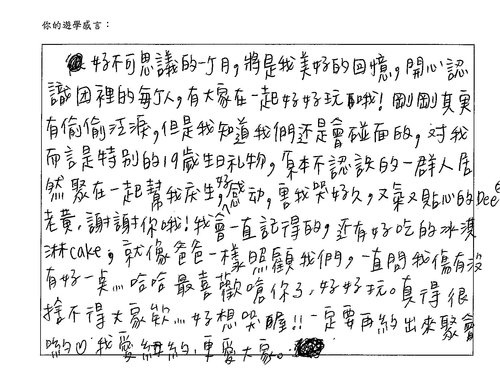 你的遊學感言：
好不可思議的一个月，將是我美好的回憶，開心認
識团裡的每个人，有大家在一起好好玩哦！剛剛其實
有偷偷泛淚，但是我知道我們还是會碰面的，对我
而言是特別的19歲生日礼物，原本不認訣的一群人居
然聚在一起幫我庆生，好感动，害我哭好久，又氣又貼心的Dee
老黄，謝謝你哦！我會一直記得的，还有好吃的冰淇
淋cake，就像爸爸一樣照顧我們，一直問我傷有没
有好一点…哈哈 最喜歡嗆你了，好好玩。真得很
捨不得大家欸…好想哭喔!! 一定要再約出來聚會
喲♡我愛紐約，更愛大家。